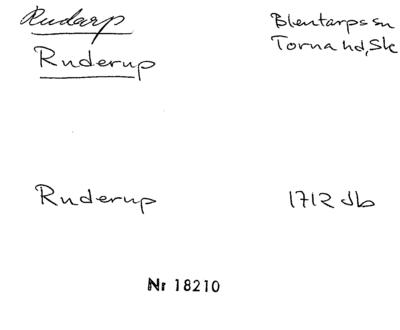 Rudarp Blentarps sn
Ruderup Torna hd, Sk
Ruderup 1712 Jb
Nr 18210